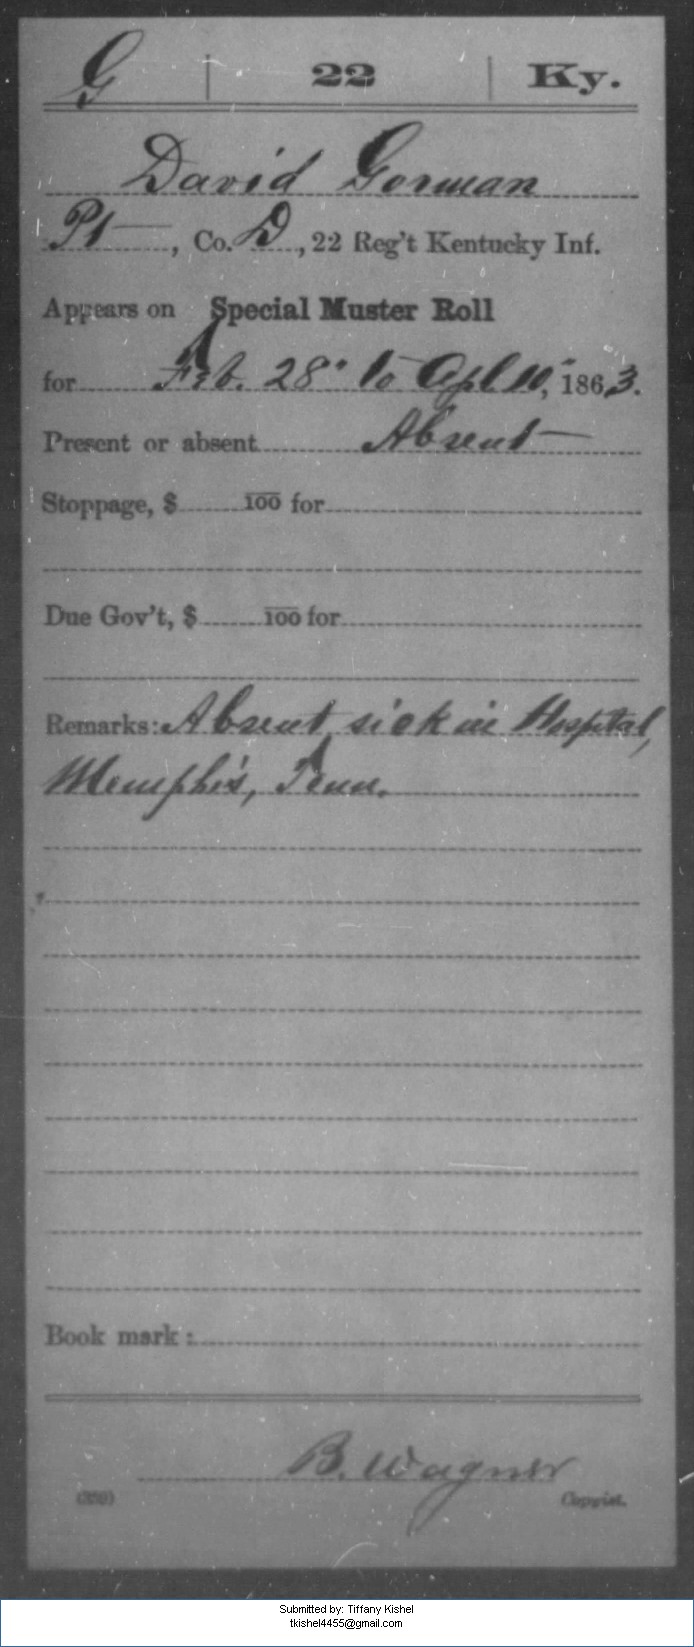 G | 22 | Ky.
David Gorman
Pt, Co. D, 22 Reg't Kentucky Inf.
Appears on Special Muster Roll
for Feb. 28" to Apl 10", 1863.
Present or absent Absent
Stoppage, $ 100 for
Due Gov't, $ 100 for
Remarks: Absent sick in Hospital,
Memphis, Tenn.
Book mark:
B. Wagner
(359) Copyist.
Submitted by: Tiffany Kishel
tkishel4455@gmail.com